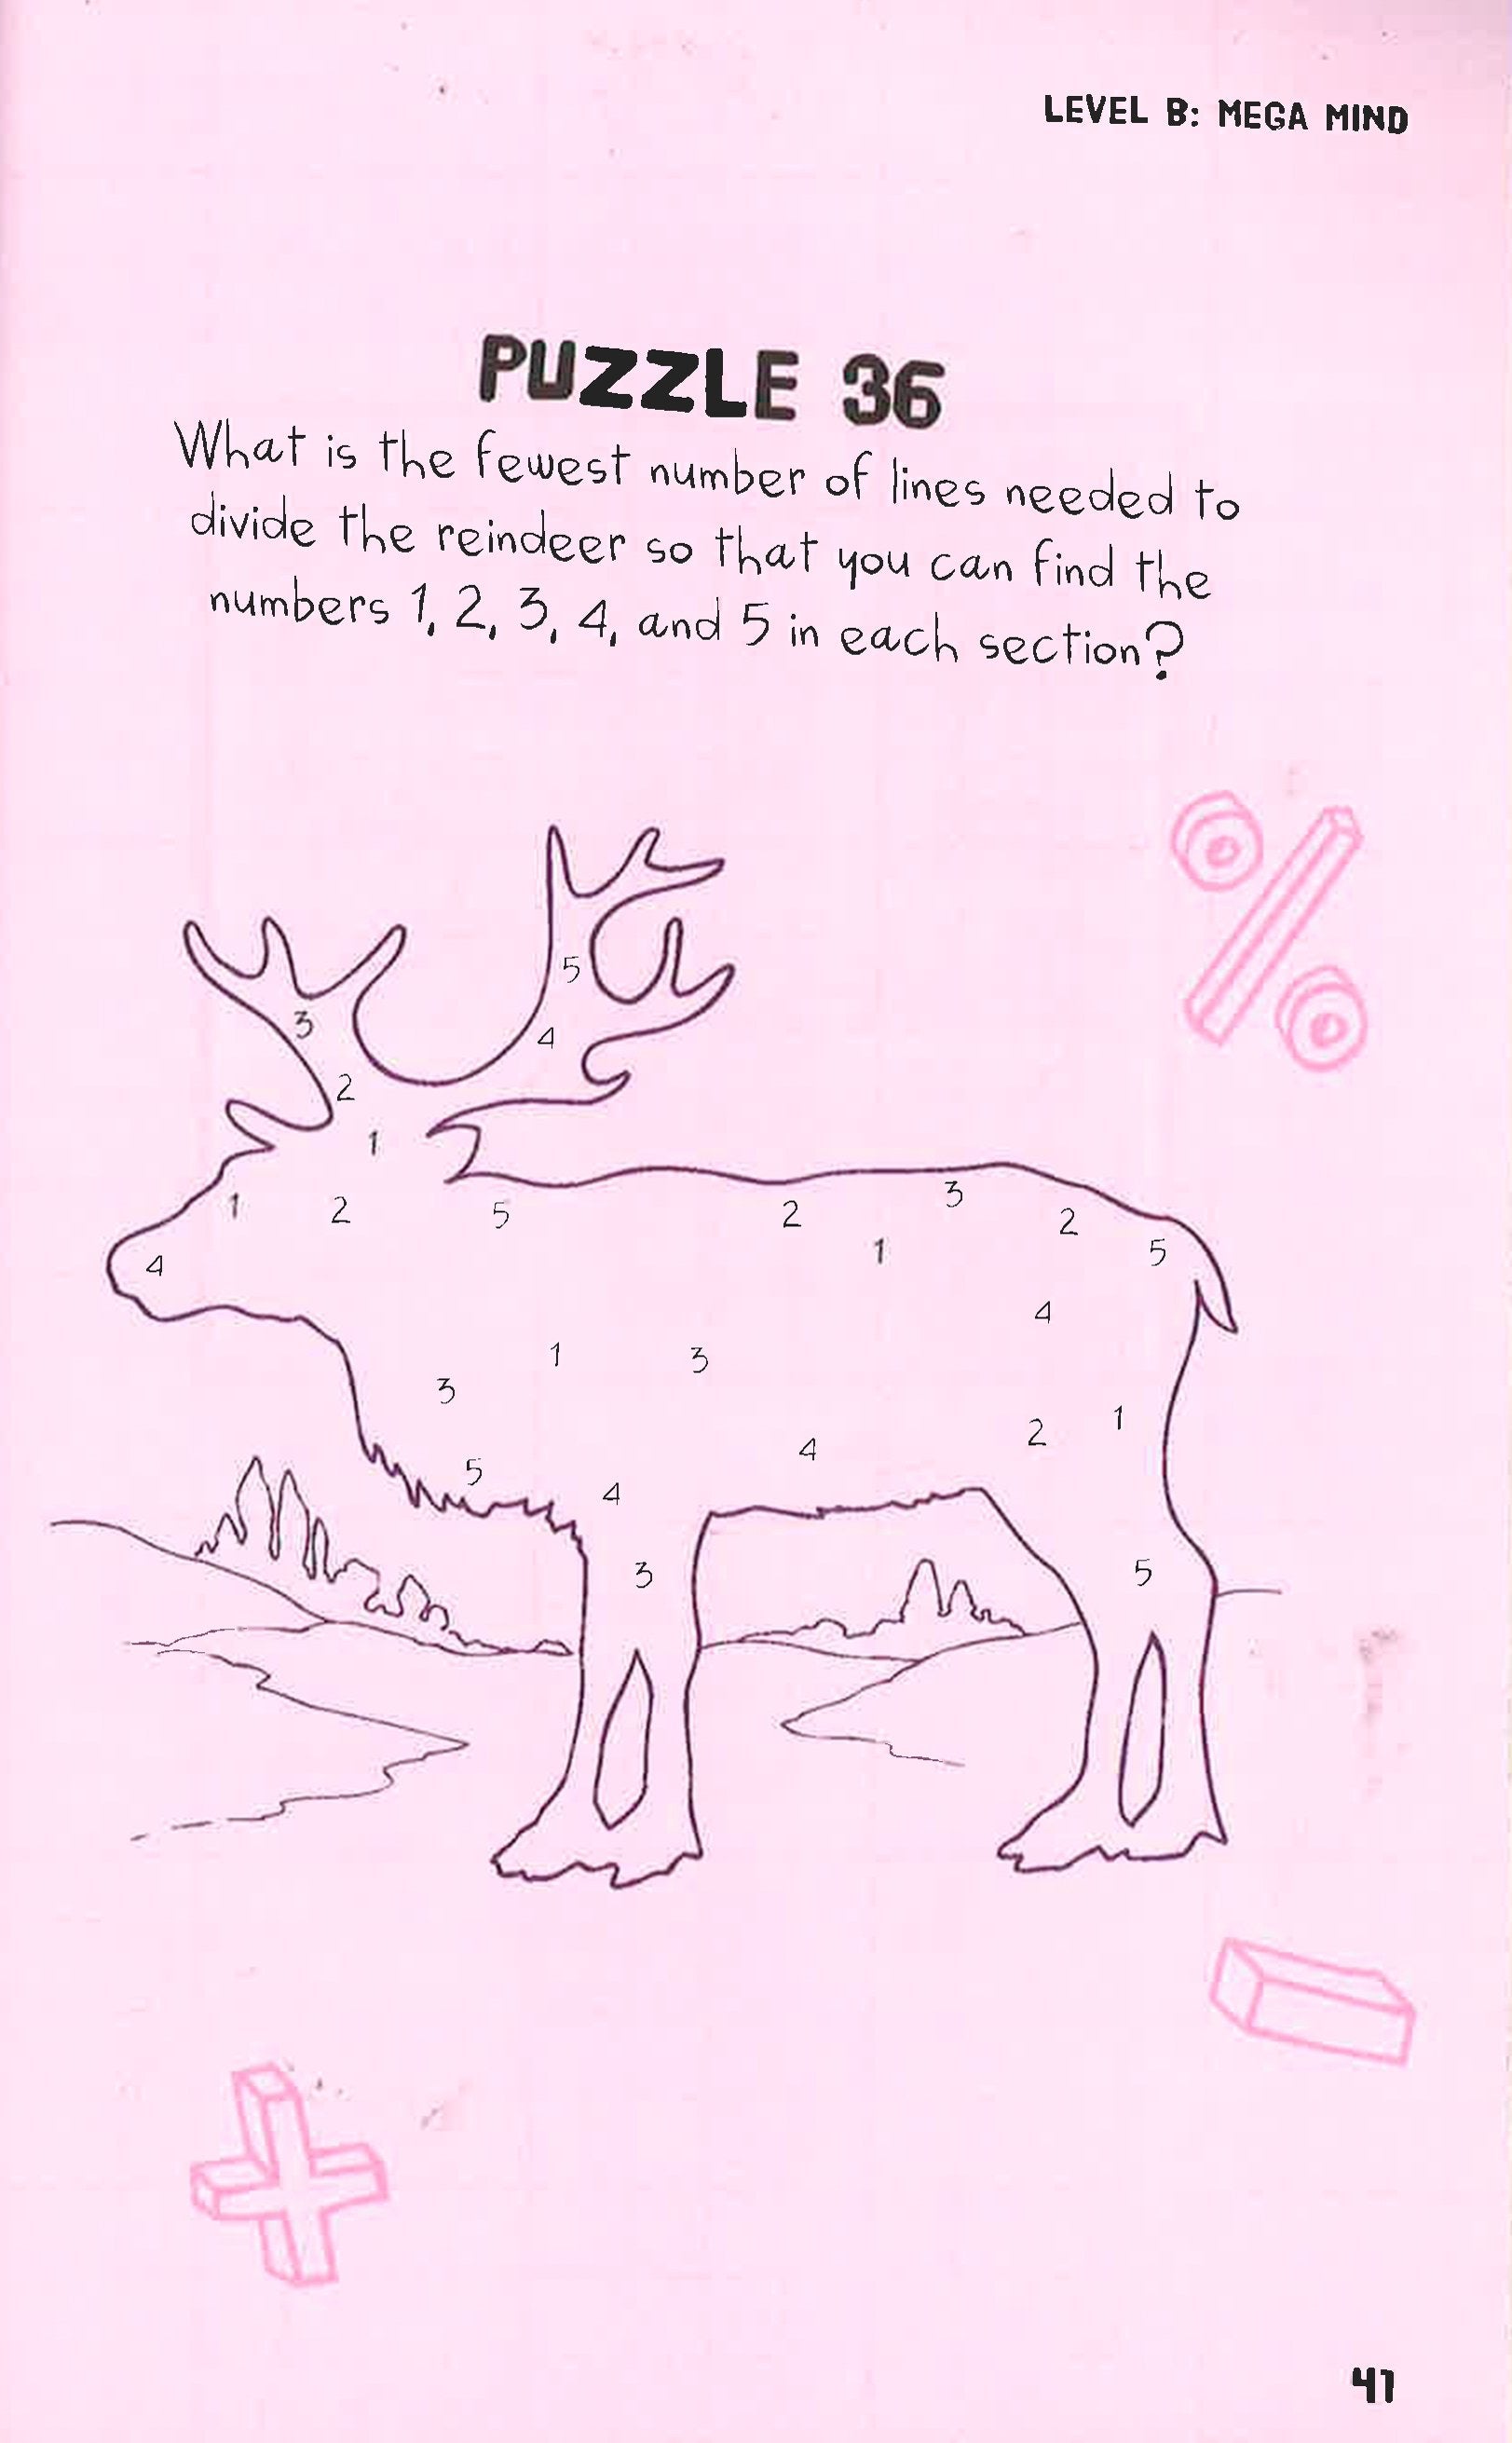 LEVEL B: MEGA MIND
PUZZLE 36
What is the fewest number of lines needed to
divide the reindeer so that you can find the
numbers 1, 2, 3, 4, and 5 in each section?
5
3
4
2
1
1
2
5
2
3
2
1
5
4
4
1
3
3
2
1
4
5
4
3
5
41